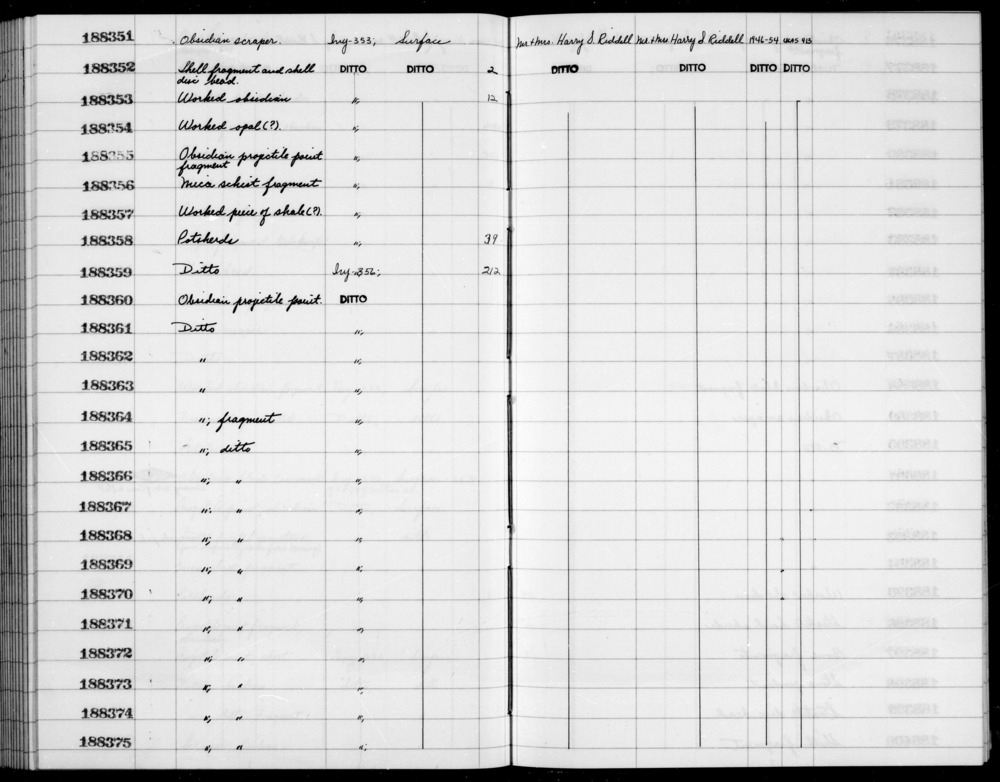 188351 Obsidian scraper. Iny-353; Surface Mr. + Mrs. Harry S. Riddell Mr. + Mrs Harry S Riddell 1946-54 UCAS 413
188352 Shell fragment and shell DITTO DITTO 2 DITTO DITTO DITTO DITTO
disc bead.
188353 Worked obsidian "; 12
188354 Worked opal (?). ";
188355 Obsidian projectile point ";
fragment
188356 Mica schist fragment ";
188357 Worked piece of shale (?). ";
188358 Potsherds "; 39
188359 Ditto Iny-356; 212
188360 Obsidian projectile point. DITTO
188361 Ditto ";
188362 " ";
188363 " ";
188364 "; fragment ";
188365 "; ditto ";
188366 "; " ";
188367 "; " ";
188368 "; " ";
188369 "; " ";
188370 "; " ";
188371 "; " ";
188372 "; " ";
188373 "; " ";
188374 "; " ";
188375 "; " ";